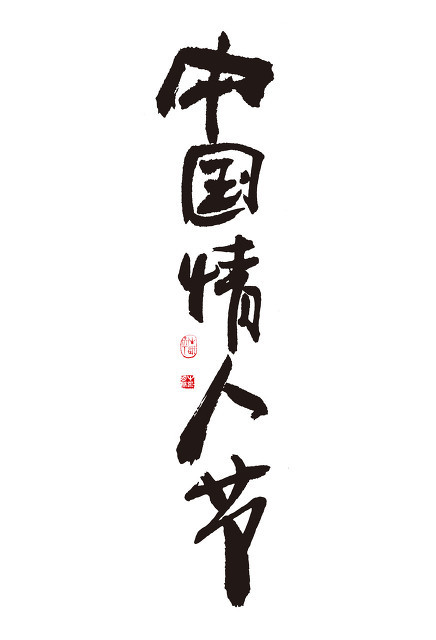 中国情人节